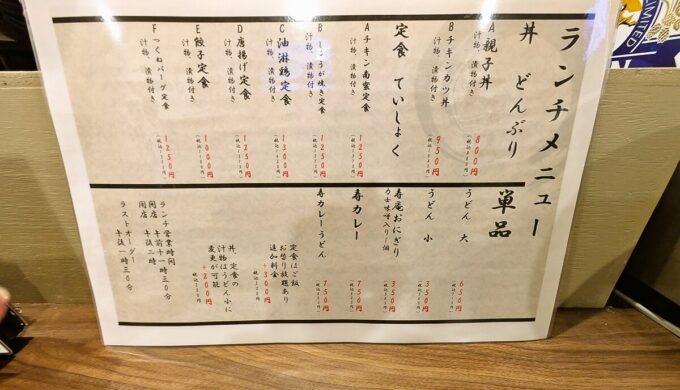 ランチメニュー
丼 どんぶり
A 親子丼
汁物、漬物付き
800円
B チキンカツ丼
汁物、漬物付き
950円
定食 ていしょく
A チキン南蛮定食
汁物、漬物付き
1250円
B しょうが焼き定食
汁物、漬物付き
1250円
C 油淋鶏定食
汁物、漬物付き
1300円
D 唐揚げ定食
汁物、漬物付き
1250円
E 餃子定食
汁物、漬物付き
1000円
F つくねバーグ定食
汁物、漬物付き
1250円
単品
うどん 大
650円
うどん 小
350円
寿庵おにぎり
力士味噌入り一個
350円
寿カレー
750円
寿カレーうどん
750円
定食はご飯
お替り放題あり
追加料金
+300円
丼、定食の
汁物はうどん小に
変更が可能
+200円
ランチ営業時間
開店 午前十一時三〇分
閉店 午後二時
ラストオーダー
午後一時三〇分
LIMITED